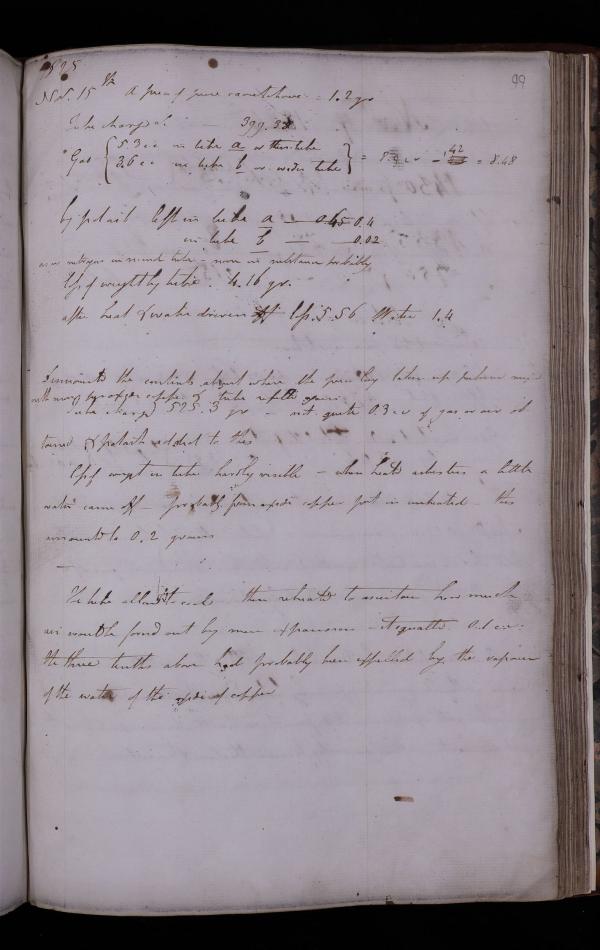 1825
99
Nov. 15th A piece of pure caoutchouc = 1.2 gr
Tube charged 399.38
Gas { 5.3 cc in tube a or thin tube
3.6 cc in tube b or wider tube } = 8.9 cc - 42 = 8.48
by potash left in tube a — 0.45 0.4
in tube b — 0.02
nitrogen in second tube - none in substance probably
loss of weight by tube 4.16 gr.
after heat & water driven off loss 5.56 Water 1.4
the contents about where the
with more by oxide copper & tube
tube charged 525.3 gr - not quite 0.3 cc of gas or air ob
tained & potash added to this
loss of weight in tube hardly visible - when heated a little
water came off - probably from oxide copper put in unheated - this
amounted to 0.2 grains
—
The tube allowed to cool then reheated to ascertain how much
air would be found out by mere expansion - it equalled 0.1 cc.
the three tenths above had probably been expelled by the vapour
of the water of the oxide of copper